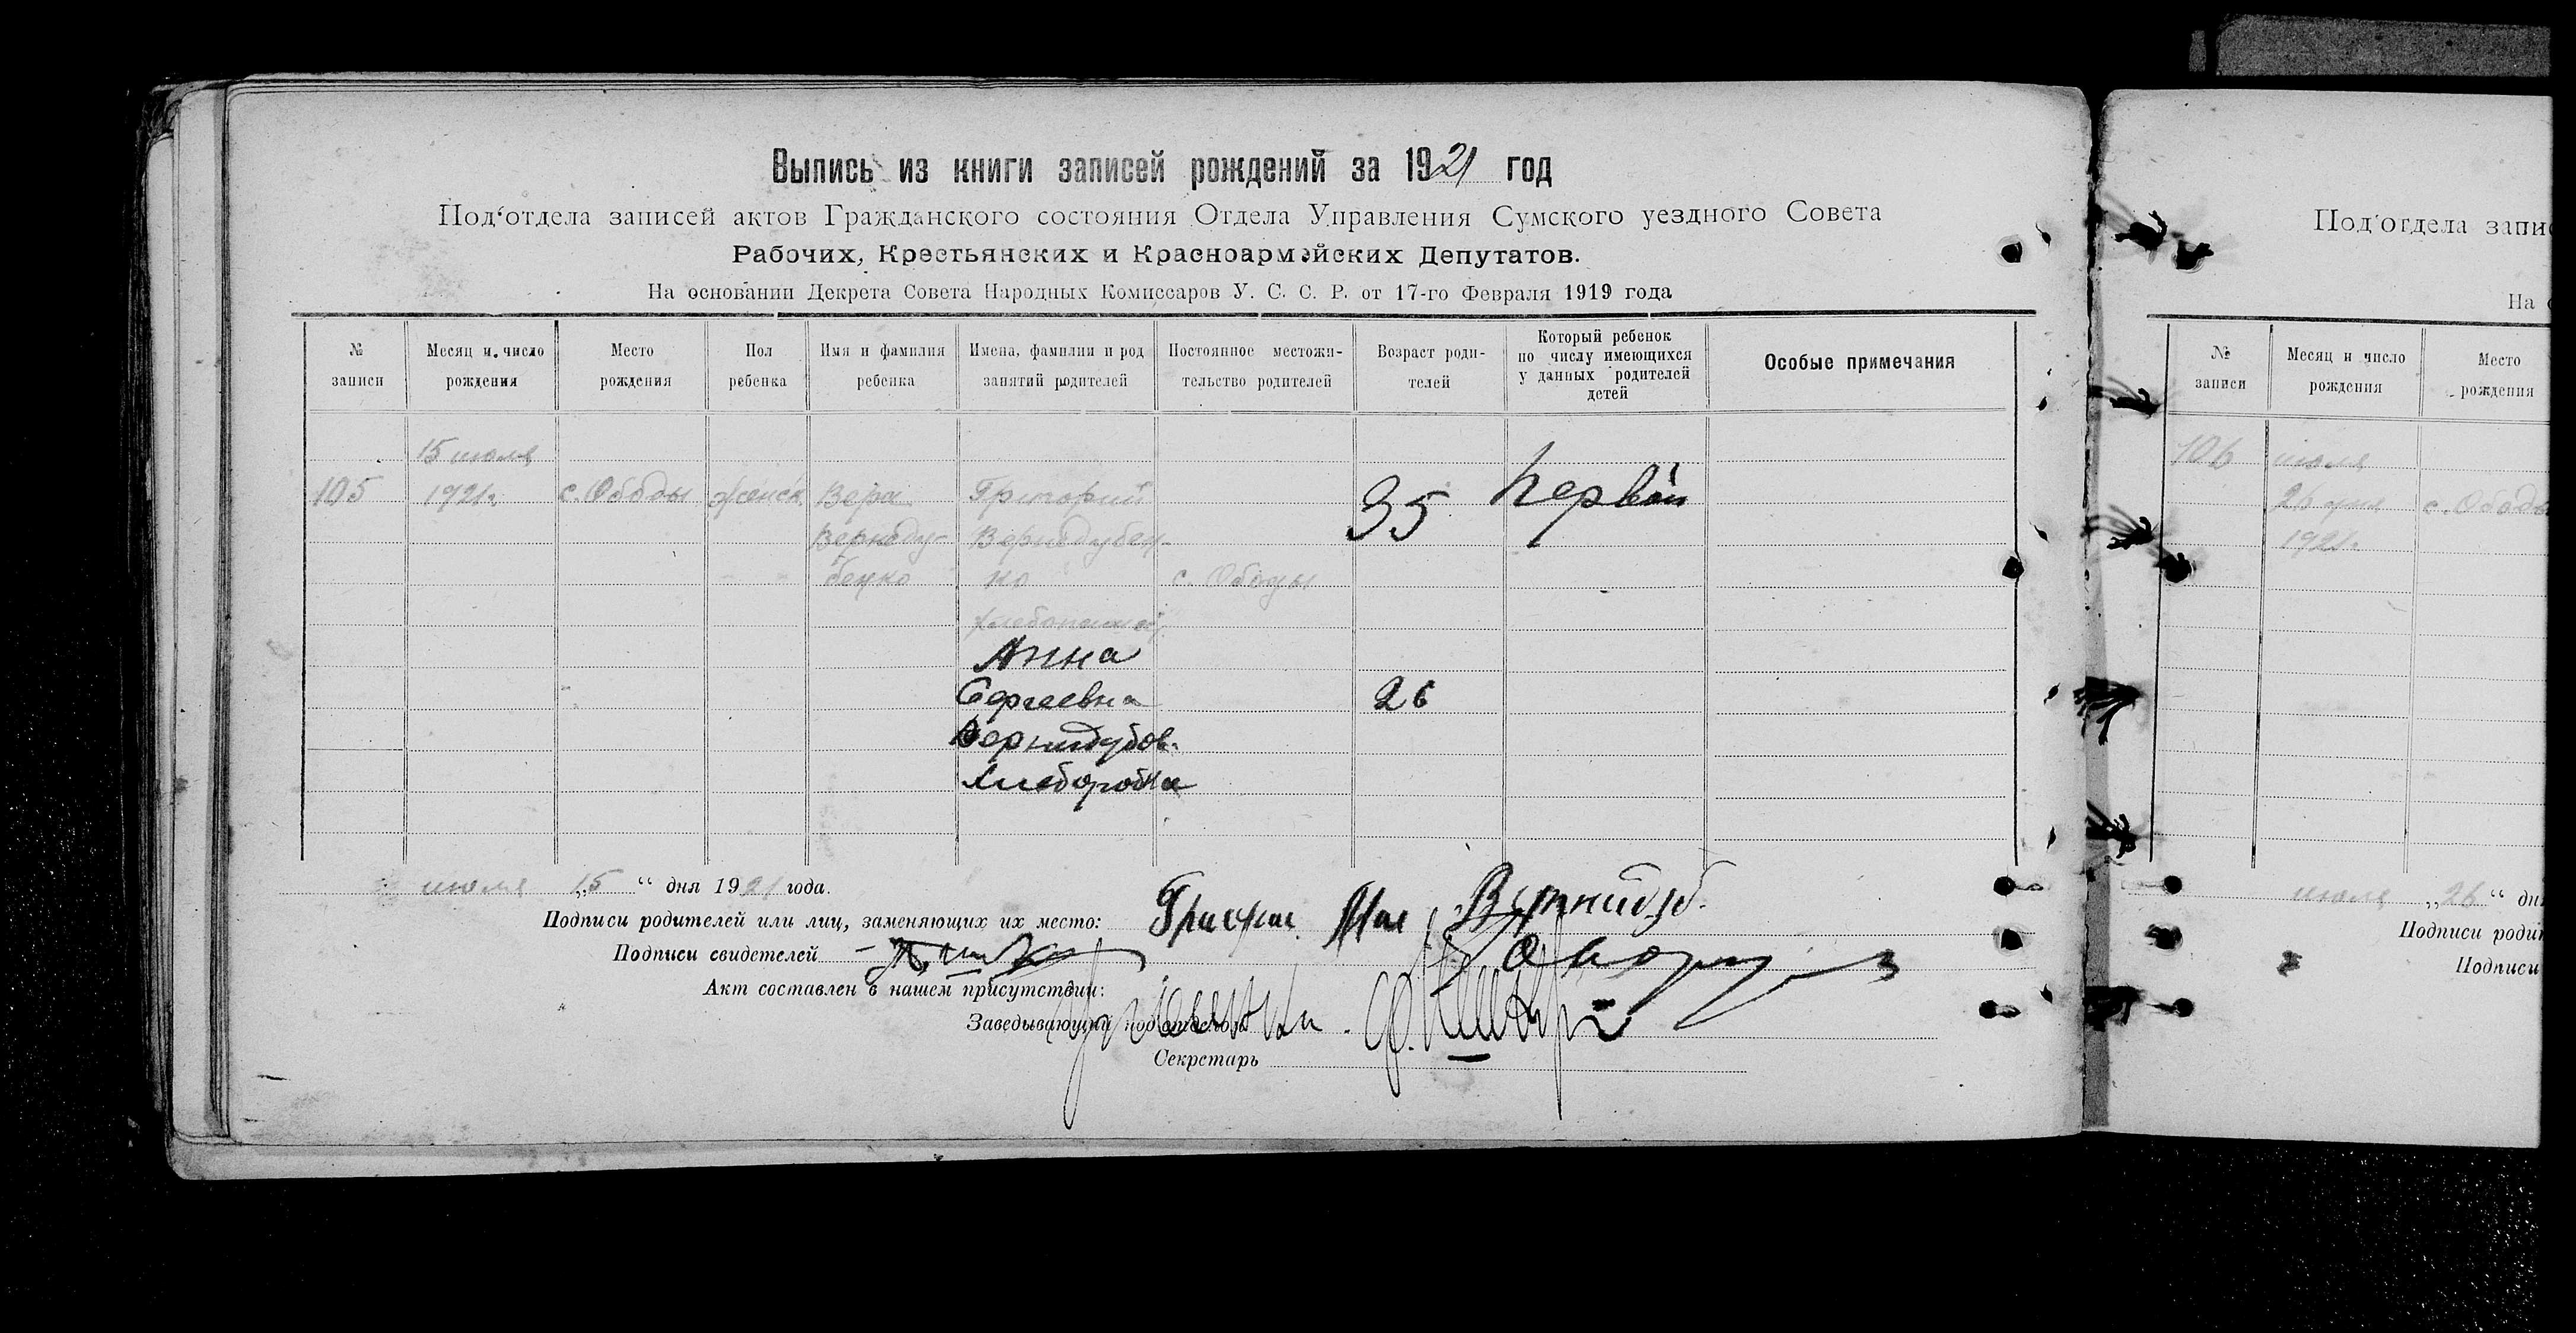 Выпись из книги записей рождений за 1921 год
Под'отдела записей актов Гражданского состояния Отдела Управления Сумского уездного Совета
Рабочих, Крестьянских и Красноармейских Депутатов.
На основании Декрета Совета Народных Комиссаров У. С. С. Р. от 17-го Февраля 1919 года
№ записи
Месяц и число рождения
Место рождения
Пол ребенка
Имя и фамилия ребенка
Имена, фамилии и род занятий родителей
Постоянное местожительство родителей
Возраст родителей
Который ребенок по числу имеющихся у данных родителей детей
Особые примечания
15 июля
105 1921 г. с. Ободы женск Вера Григорий 35 первый
Верниду- Вернидубен-
бенко ко с. Ободы
Анна
Сергеевна 26
Вернидубов.
Хлеборобка
июля „15“ дня 1921 года.
Подписи родителей или лиц, заменяющих их место:
Подписи свидетелей
Акт составлен в нашем присутствии:
Заведывающий подотделом
Секретарь
Под'отдела запи
На
№ записи
Месяц и число рождения
Место рождения
106 июля
26 1921 г. с. Ободы
июля „26“ дн
Подписи роди
Подписи